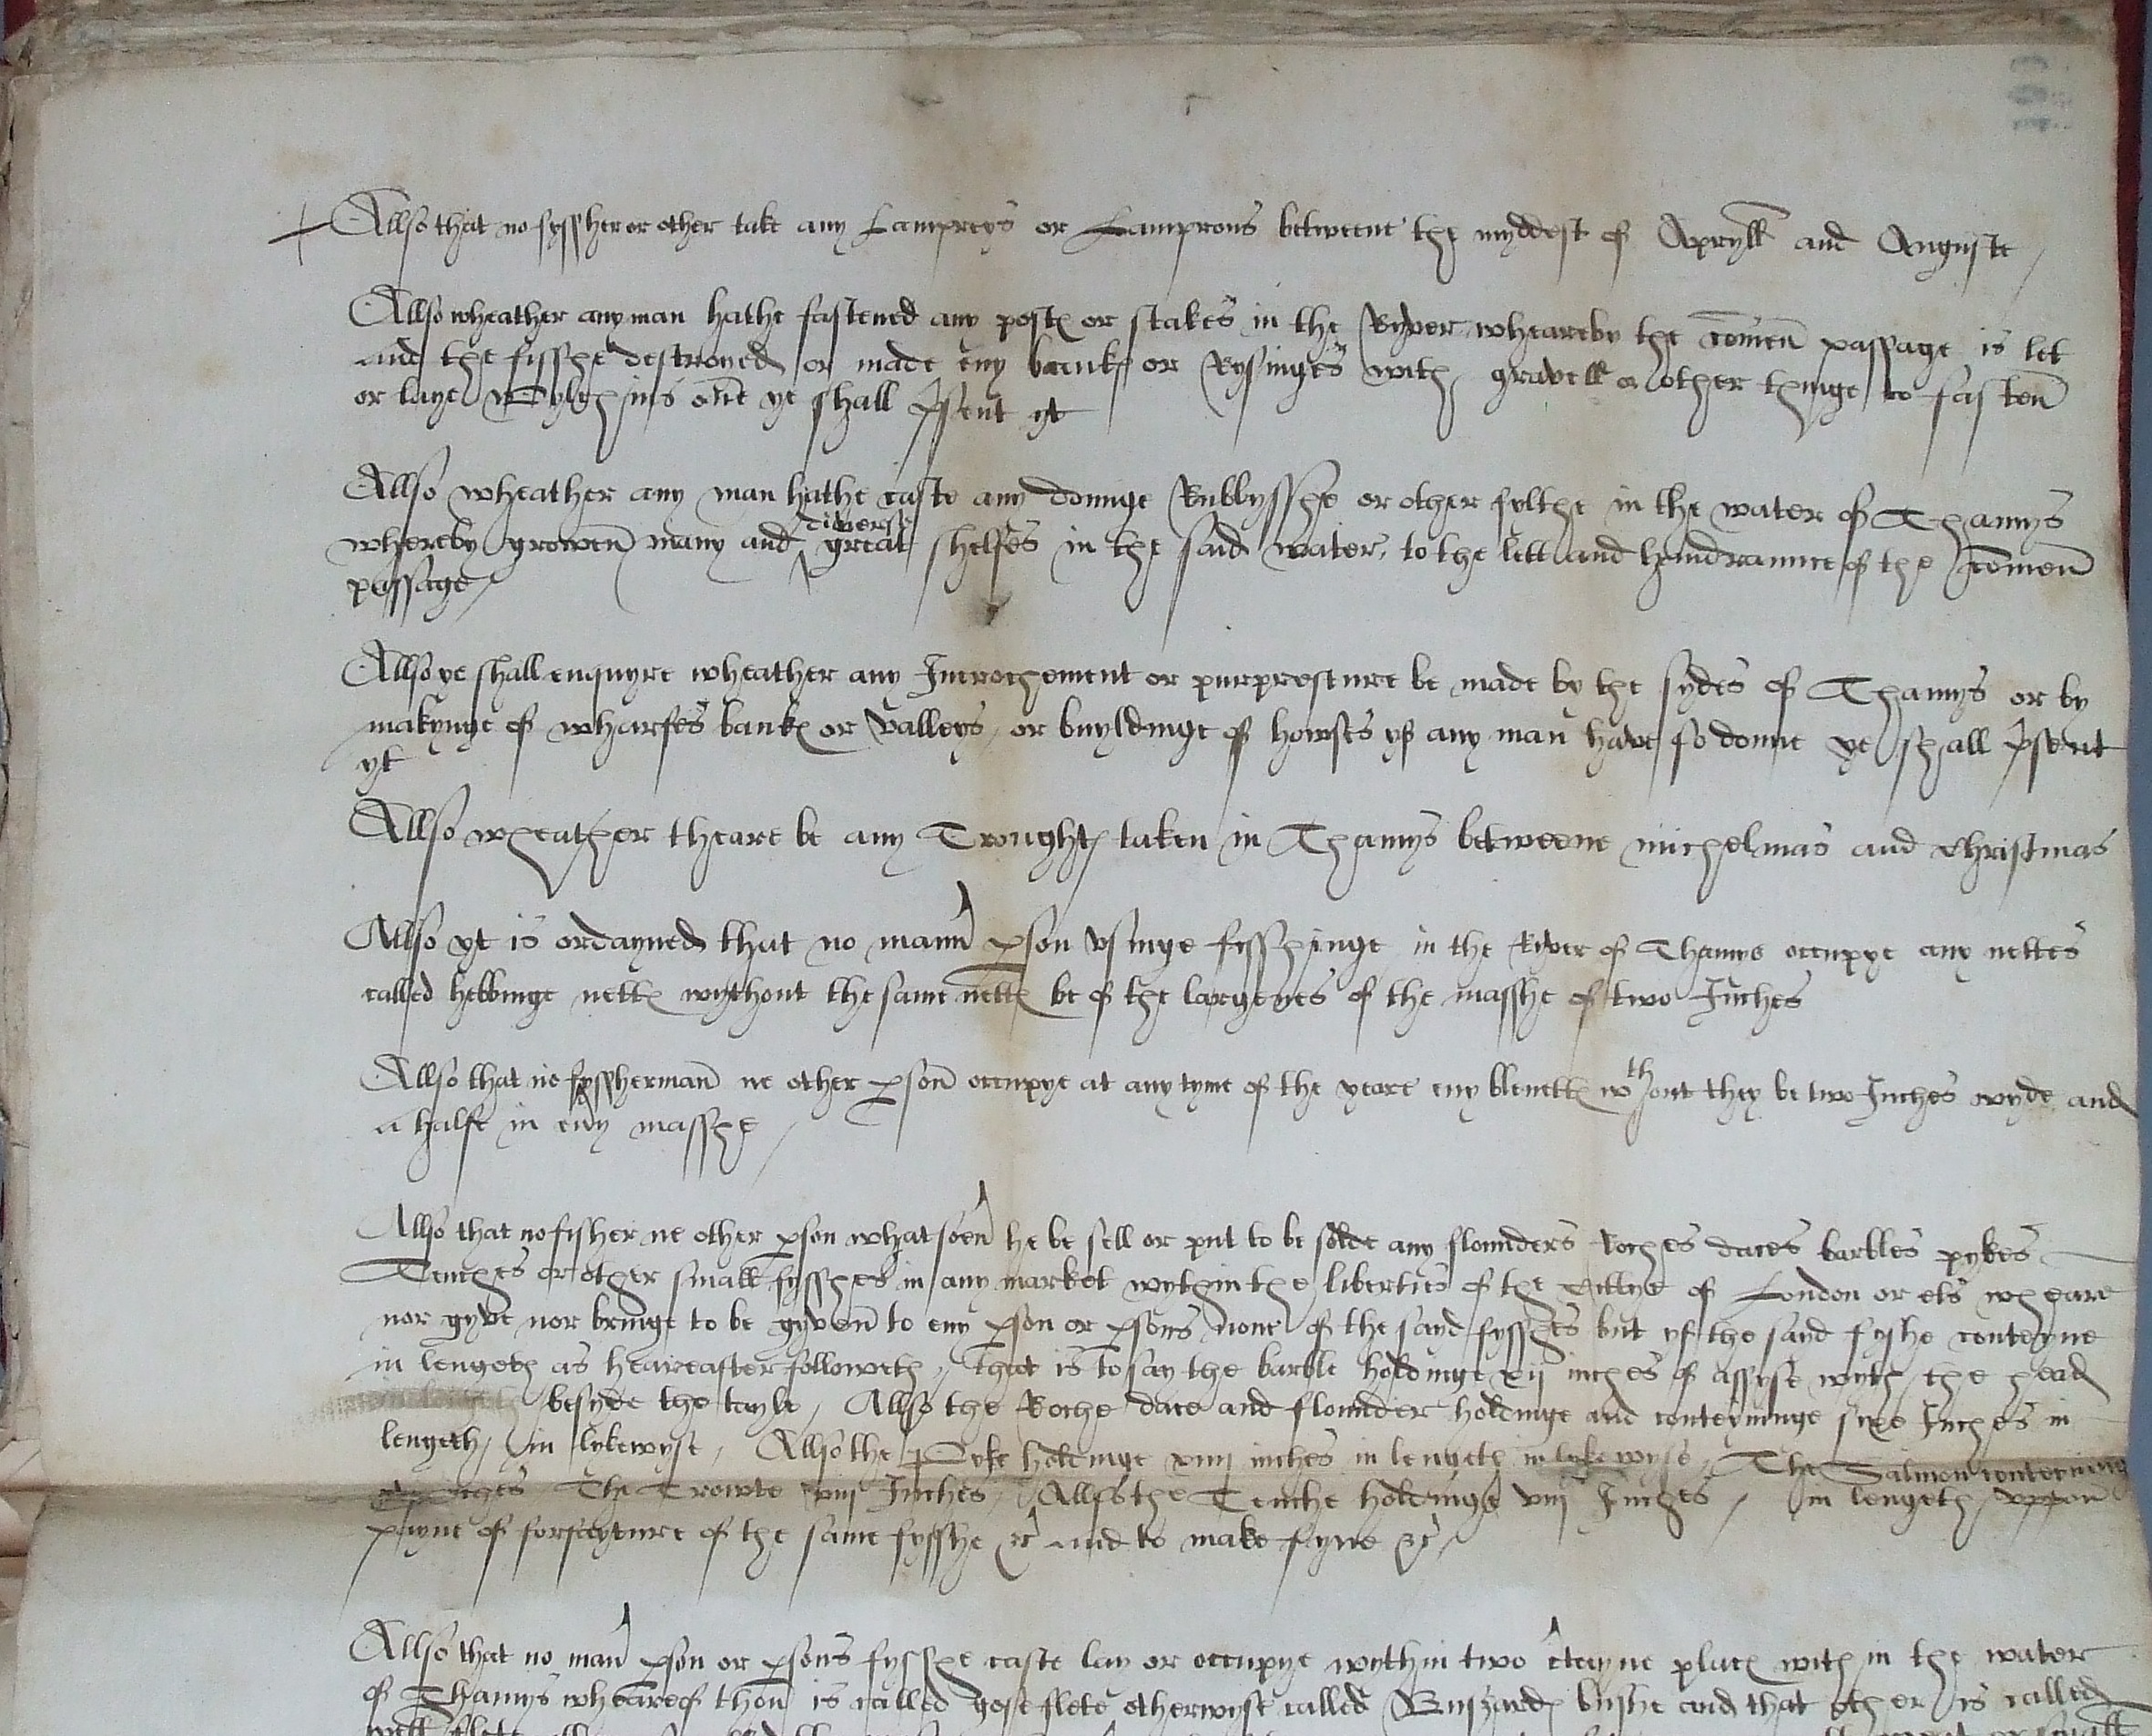 Allso that no fyssher or other take any Lampreys or Lamprons betweene the myddest of Apryll and Auguste
Allso wheather any man hathe fastened any post or stakes in the Ryver wheareby the comen passage is let
and the fisshe destroyed or made eny bank or Rysinges with gravell or other thinge to fasten
or laye ye shall psent yt
Allso wheather any man hathe caste any donnge Rubbysshe or other fylthe in the water of Thamys
diverse
whereby growen many and great shelfes in the said water, to the lett and hindraunce of the comen
passage
Allso ye shall enquyre wheather any Incrochement or purpresture be made by the sydes of Thamys or by
makynge of wharfes bank or Valleys, or buyldinge of howses yf any man have so donne ye shall psent
yt
Allso wheather theare be any Trought taken in Thamys betweene michelmas and christmas
Allso yt is ordayned that no mann pson Vsinge fisshinge in the River of Thamys occupye any nettes
called hebbinge nett wythout the same nett be of the largenes of the masshe of two Inches
Allso that no fyssherman ne other pson occupye at any tyme of the yeare eny blenett wthout they be two Inches wyde and
a halfe in eny masshe
Allso that no fisher ne other pson whatsoen he be sell or put to be solde any flounders Roches daces barbles pykes
Tenches or other small fysshes in any market wythin the liberties of the Cittye of London or els wheare
nor gyve nor bringe to be gyven to eny pson or psons none of the sayd fysshes but yf the said fyshe conteyne
in lengeth as heareafter followeth, that is to say the barble holdinge xij inches of assyse wyth the head
besyde the tayle, Allso the Roche dace and flounder holdinge and conteyninge sixe Inches in
lengeth, in lykewyse, Allso the Pyke holdinge xiiij inches in lengeth in lykewyse, The Salmon conteyning
The Trowte viij Inches, Allso the Tenche holdinge viij Inches, in lengeth, vppon
payne of forfeyture of the same fysshe &c and to make fyne &c
Allso that no man pson or psons fysshe caste lay or occupye wythin two ctayne plac with in the water
of Thamys wheareof thon is called gose flete otherwyse called Buszard bushe and that other is called